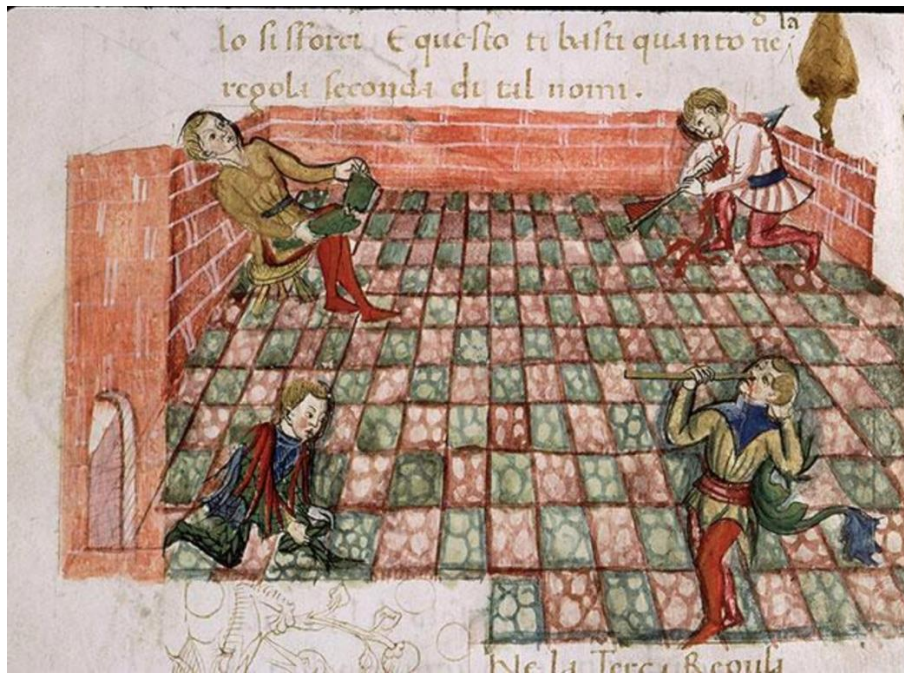 lo si sforci. E questo ti basti quanto ne
la
regola seconda di tal nomi.
Ne la Terca Regula